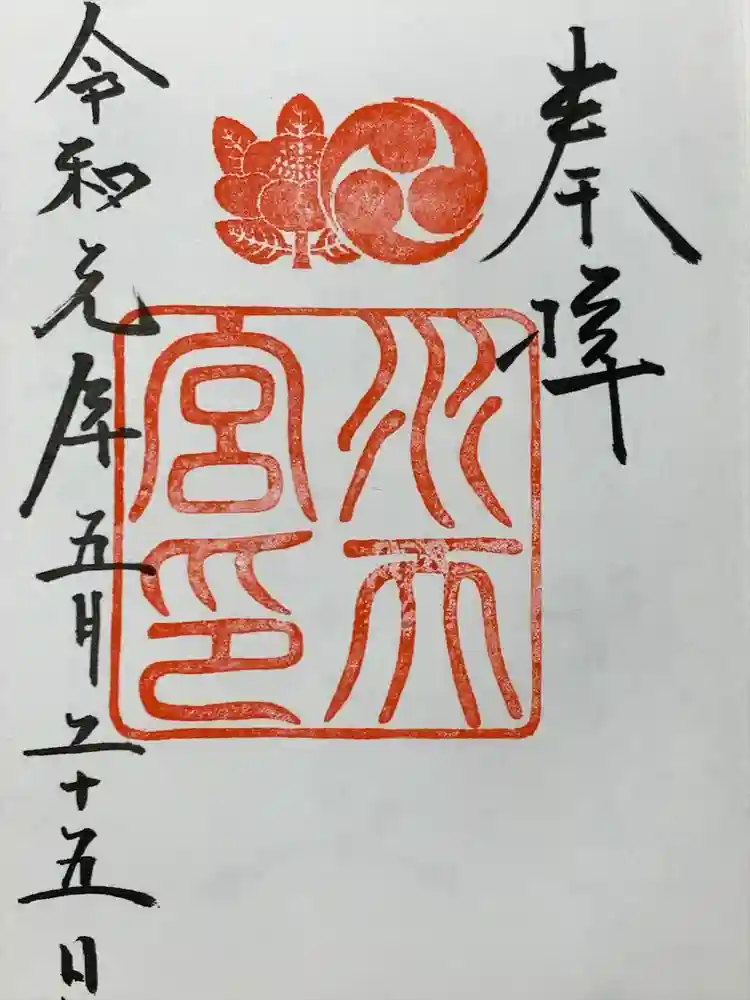 奉拝
水天
宮印
令和元年五月二十五日